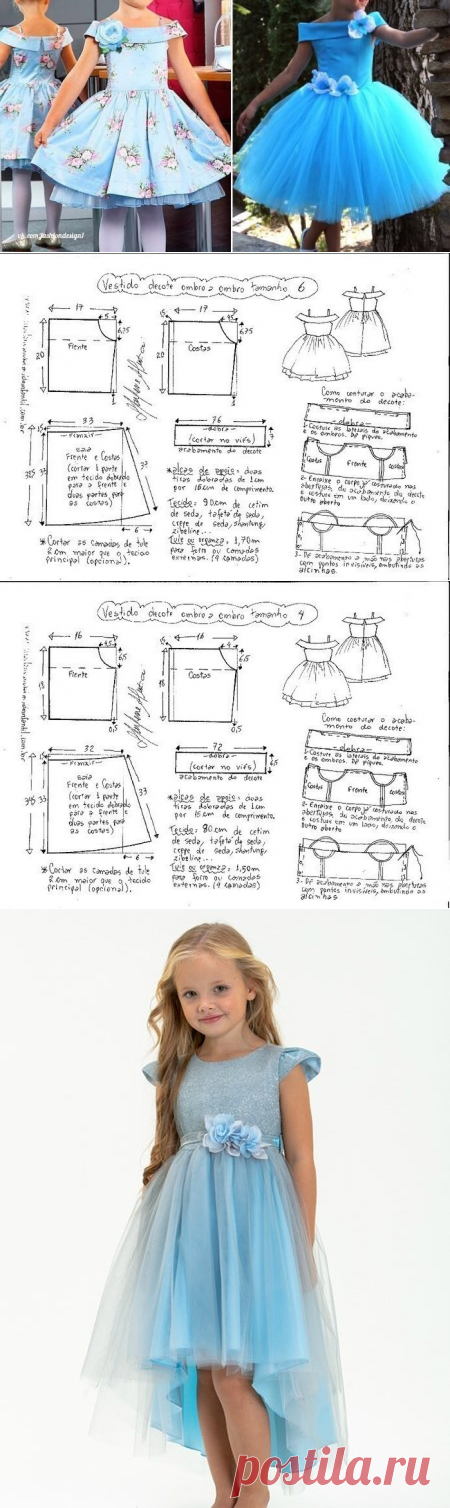 vk.com/fashiondesign1
Vestido decote ombro a ombro tamanho 6
17
5
6,75
20
Frente
17
4,5
6,75
Costas
33
Franzir
33
Saia
Frente e Costas
(cortar 1 parte
em tecido dobrado
para a frente e
duas partes para
as costas)
33
6
* Cortar as camadas de tule
2 cm maior que o tecido
principal (opcional).
76
dobra
(cortar no viés)
7
acabamento do decote
* alças de apoio: duas
tiras dobradas de 1cm
por 16cm de comprimento.
Tecido: 90cm de cetim
de seda, tafetá de seda,
crepe de seda, shantung,
zibeline...
Tule ou organza: 1,70m
para forro ou camadas
externas. (4 camadas)
Como costurar o acaba-
mento do decote:
dobra
1- Costure as laterais do acabamento
e os ombros. Dê piques.
Costas
Frente
Costas
2- Encaixe o corpo já costurado nas
aberturas do acabamento do decote
e costure em um lado, deixando o
outro aberto
3- Dê acabamento à mão nas aberturas
com pontos invisíveis, embutindo as
alcinhas.
Vestido decote ombro a ombro tamanho 4
16
4,5
6,5
18
Frente
0,5
16
4
6,5
Costas
0,5
32
Franzir
33
Saia
Frente e Costas
(cortar 1 parte
em tecido dobrado
para a frente e
duas partes para
as costas)
33
6
* Cortar as camadas de tule
2 cm maior que o tecido
principal (opcional).
72
dobra
(cortar no viés)
6,5
acabamento do decote
* alças de apoio: duas
tiras dobradas de 1cm
por 15cm de comprimento.
Tecido: 80cm de cetim
de seda, tafetá de seda,
crepe de seda, shantung,
zibeline...
Tule ou organza: 1,50m
para forro ou camadas
externas. (4 camadas)
Como costurar o acaba-
mento do decote:
dobra
1- Costure as laterais do acabamento
e os ombros. Dê piques.
Costas
Frente
Costas
2- Encaixe o corpo já costurado nas
aberturas do acabamento do decote
e costure em um lado, deixando o
outro aberto
3- Dê acabamento à mão nas aberturas
com pontos invisíveis, embutindo as
alcinhas
postila.ru